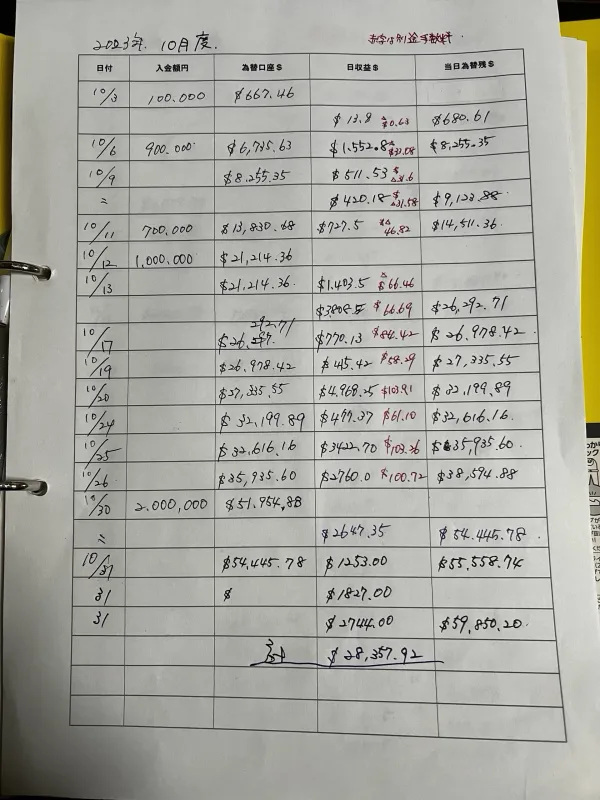 2023年 10月度.
赤字は別途手数料.
日付 入金額円 為替口座$ 日収益$ 当日為替残$
10/3 100.000 $667.46
$13.8 $0.63 $680.61
10/6 900.000 $6,735.63 $1.552.8 $33.08 $8,255.35
10/9 $8.255.35 $511.53 $31.6
〃 $420.18 $31.58 $9,123.88
10/11 700,000 $13,830.68 $727.5 46.82 $14,511.36
10/12 1,000,000 $21,214.36
10/13 $21,214.36. $1.403.5 $66.46
$3808.5 $66.69 $26,292.71
10/17 $26. 292.71 $770.13 $84.42 $26,978.42
10/19 $26,978.42 $45.42 $58.29 $27,335.55
10/20 $27,335.55 $4,968.25 $103.91 $32,199.89
10/24 $32,199.89 $477.37 $61.10 $32,616.16
10/25 $32,616.16 $3422.70 $103.26 $35,935.60
10/26 $35,935.60 $2760.0 $100.72 $38,594.88
10/30 2.000,000 $51,954,88
〃 $2647.35 $54.445.78
10/31 $54,445.78 $1253.00 $55,558.74
31 $ $1827.00
31 $2744.00 $59,850.20
計 $28,357.92